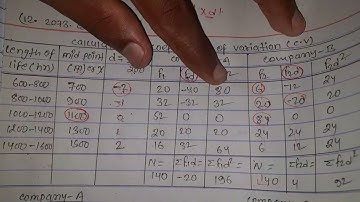 (12. 2073.
calcu of variation (c.v)
company-B
Length of mid point d=
life(hr) (m) or x 200 f₁ f₂ f₂d f₂d²
600-800 700 -2 20 -40 80 6 -12 24
800-1000 900 -1 32 -32 32 20 -20 20
1000-1200 1100 0 52 0 0 84 0 0
1200-1400 1300 1 20 20 20 24 24 24
1400-1600 1500 2 16 32 64 6 12 24
N= Σf₁d= Σf₁d²= N= Σf₂d= Σf₂d²
140 -20 196 140 4 92
company-A
company-B